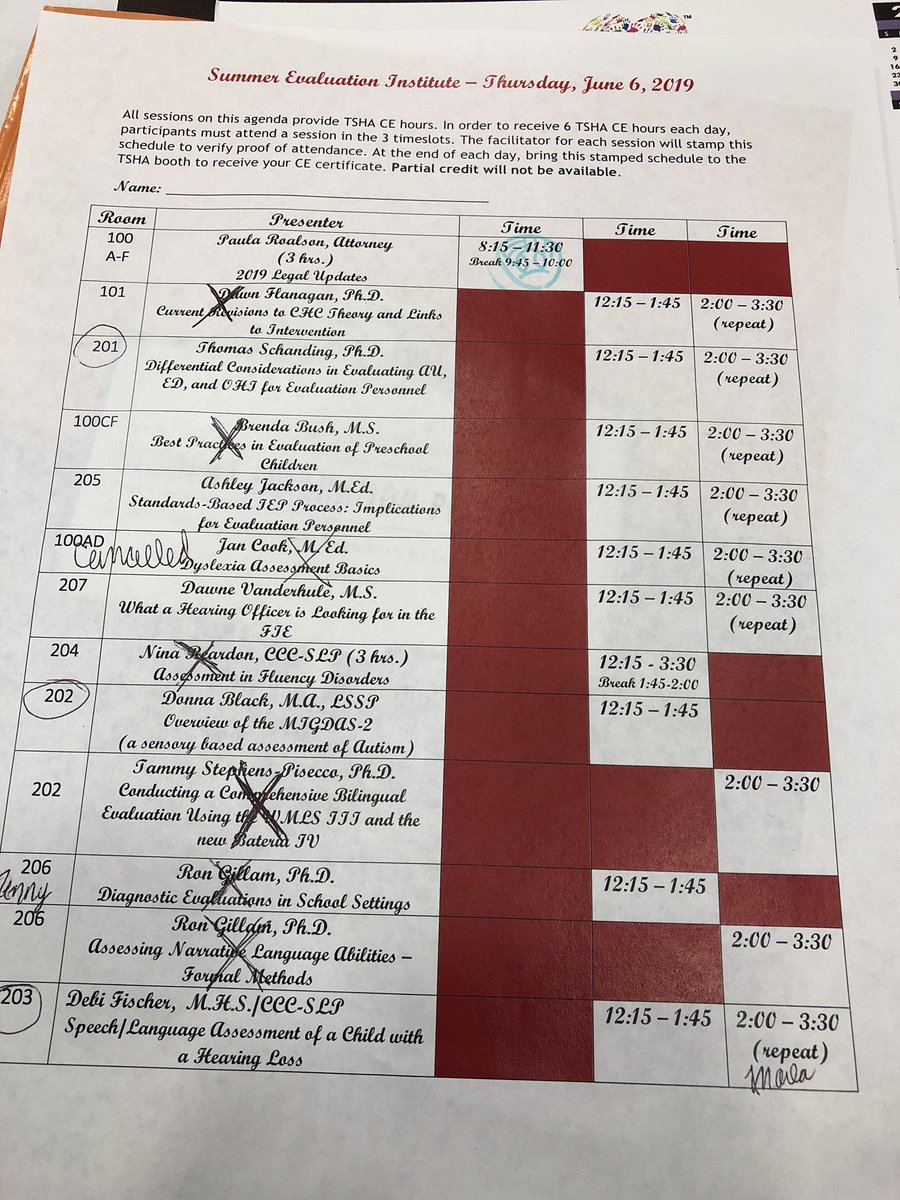 Summer Evaluation Institute – Thursday, June 6, 2019
All sessions on this agenda provide TSHA CE hours. In order to receive 6 TSHA CE hours each day,
participants must attend a session in the 3 timeslots. The facilitator for each session will stamp this
schedule to verify proof of attendance. At the end of each day, bring this stamped schedule to the
TSHA booth to receive your CE certificate. Partial credit will not be available.
Name:
Room Presenter Time Time Time
100 Paula Roalson, Attorney 8:15 – 11:30
A-F (3 hrs.) Break 9:45 – 10:00
2019 Legal Updates
101 Dawn Flanagan, Ph.D. 12:15 – 1:45 2:00 – 3:30
Current Revisions to CHC Theory and Links (repeat)
to Intervention
201 Thomas Schanding, Ph.D. 12:15 – 1:45 2:00 – 3:30
Differential Considerations in Evaluating AU, (repeat)
ED, and OHI for Evaluation Personnel
100CF Brenda Bush, M.S. 12:15 – 1:45 2:00 – 3:30
Best Practices in Evaluation of Preschool (repeat)
Children
205 Ashley Jackson, M.Ed. 12:15 – 1:45 2:00 – 3:30
Standards-Based IEP Process: Implications (repeat)
for Evaluation Personnel
100AD Jan Cook, M.Ed. 12:15 – 1:45 2:00 – 3:30
Cancelled Dyslexia Assessment Basics (repeat)
207 Dawne Vanderhule, M.S. 12:15 – 1:45 2:00 – 3:30
What a Hearing Officer is Looking for in the (repeat)
FIE
204 Nina Reardon, CCC-SLP (3 hrs.) 12:15 - 3:30
Assessment in Fluency Disorders Break 1:45-2:00
202 Donna Black, M.A., LSSP 12:15 – 1:45
Overview of the MIGDAS-2
(a sensory based assessment of Autism)
202 Tammy Stephens-Pisecco, Ph.D. 2:00 – 3:30
Conducting a Comprehensive Bilingual
Evaluation Using the WMLS III and the
new Bateria IV
206 Ron Gillam, Ph.D. 12:15 – 1:45
Diagnostic Evaluations in School Settings
206 Ron Gillam, Ph.D. 2:00 – 3:30
Assessing Narrative Language Abilities –
Formal Methods
203 Debi Fischer, M.H.S./CCC-SLP 12:15 – 1:45 2:00 – 3:30
Speech/Language Assessment of a Child with (repeat)
a Hearing Loss